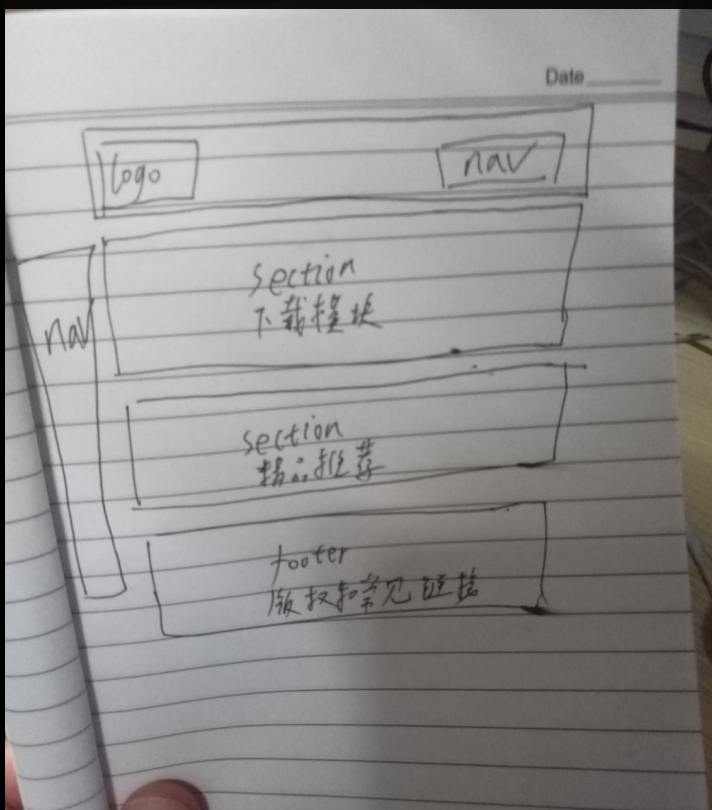 Date
logo
nav
nav
section
下载模块
section
精品推荐
footer
版权和常见链接